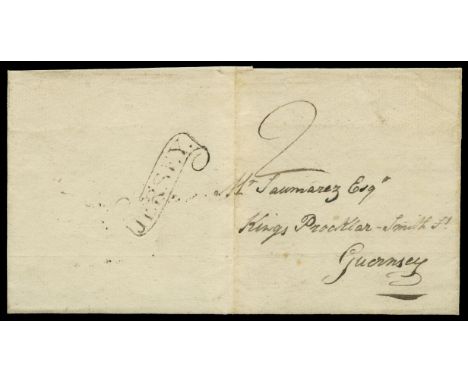 JERSEY.
2
Mr. Saumarez Esqr
Kings Procktar - Smith St.
Guernsey